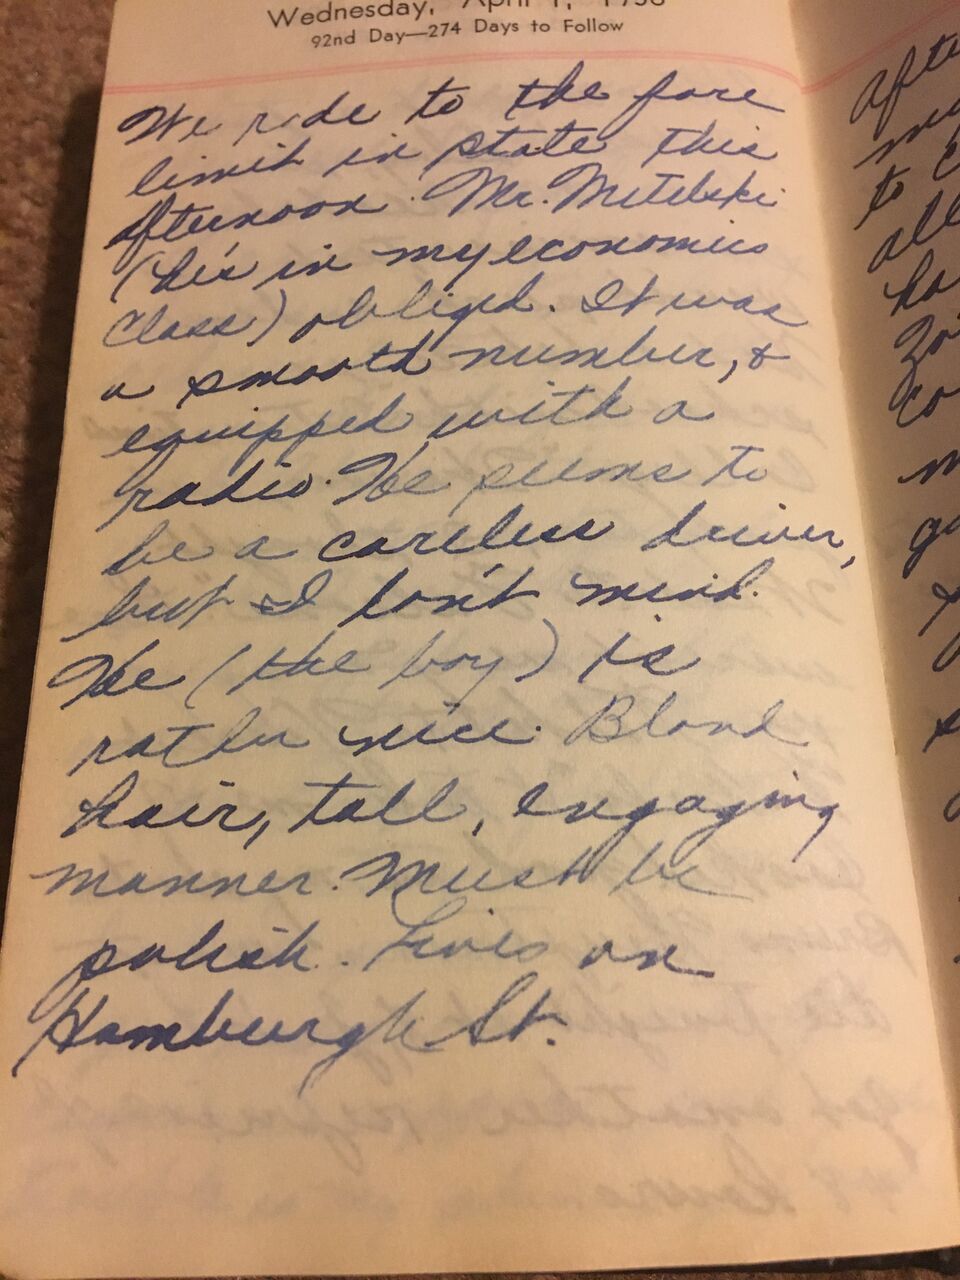 Wednesday, April 1, 1936
92nd Day—274 Days to Follow
We ride to the fare
limit in state this
afternoon. Mr. Mitelski
(he's in my economics
class) obliged. It was
a smooth number, &
equipped with a
radio. He seems to
be a careless driver,
but I don't mind.
He (the boy) is
rather nice. Blond
hair, tall, engaging
manner. Must be
polish. Lives on
Hamburgh St.